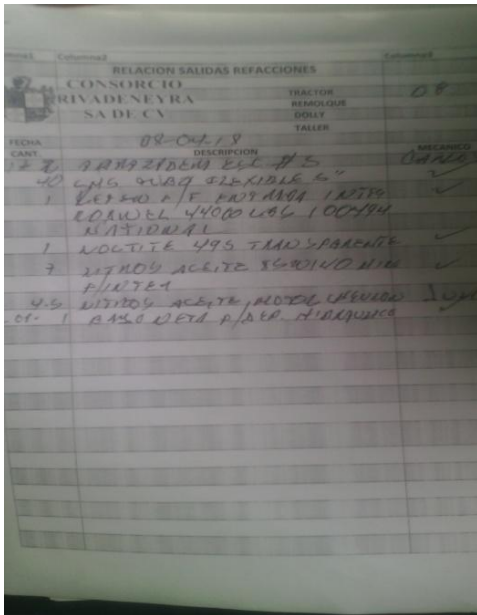 Columna1 Columna2 Columna3
RELACION SALIDAS REFACCIONES
CONSORCIO
RIVADENEYRA
SA DE CV
TRACTOR 08
REMOLQUE
DOLLY
TALLER
FECHA 08-04-18
CANT. DESCRIPCION MECANICO
ABRAZADERA ESC # 5 CARLOS
40 CMS TUBO FLEXIBLE 5"
1 RETEN P/F ENTRADA INTER
ROKWEL 44000 LBS 100494
NATIONAL
1 LOCTITE 495 TRANSPARENTE
7 LITROS ACEITE 85W140 MIN
P/INTER
4.5 LITROS ACEITE MOTOR CHEVRON
1 BAYONETA P/DEP. HIDRAULICO